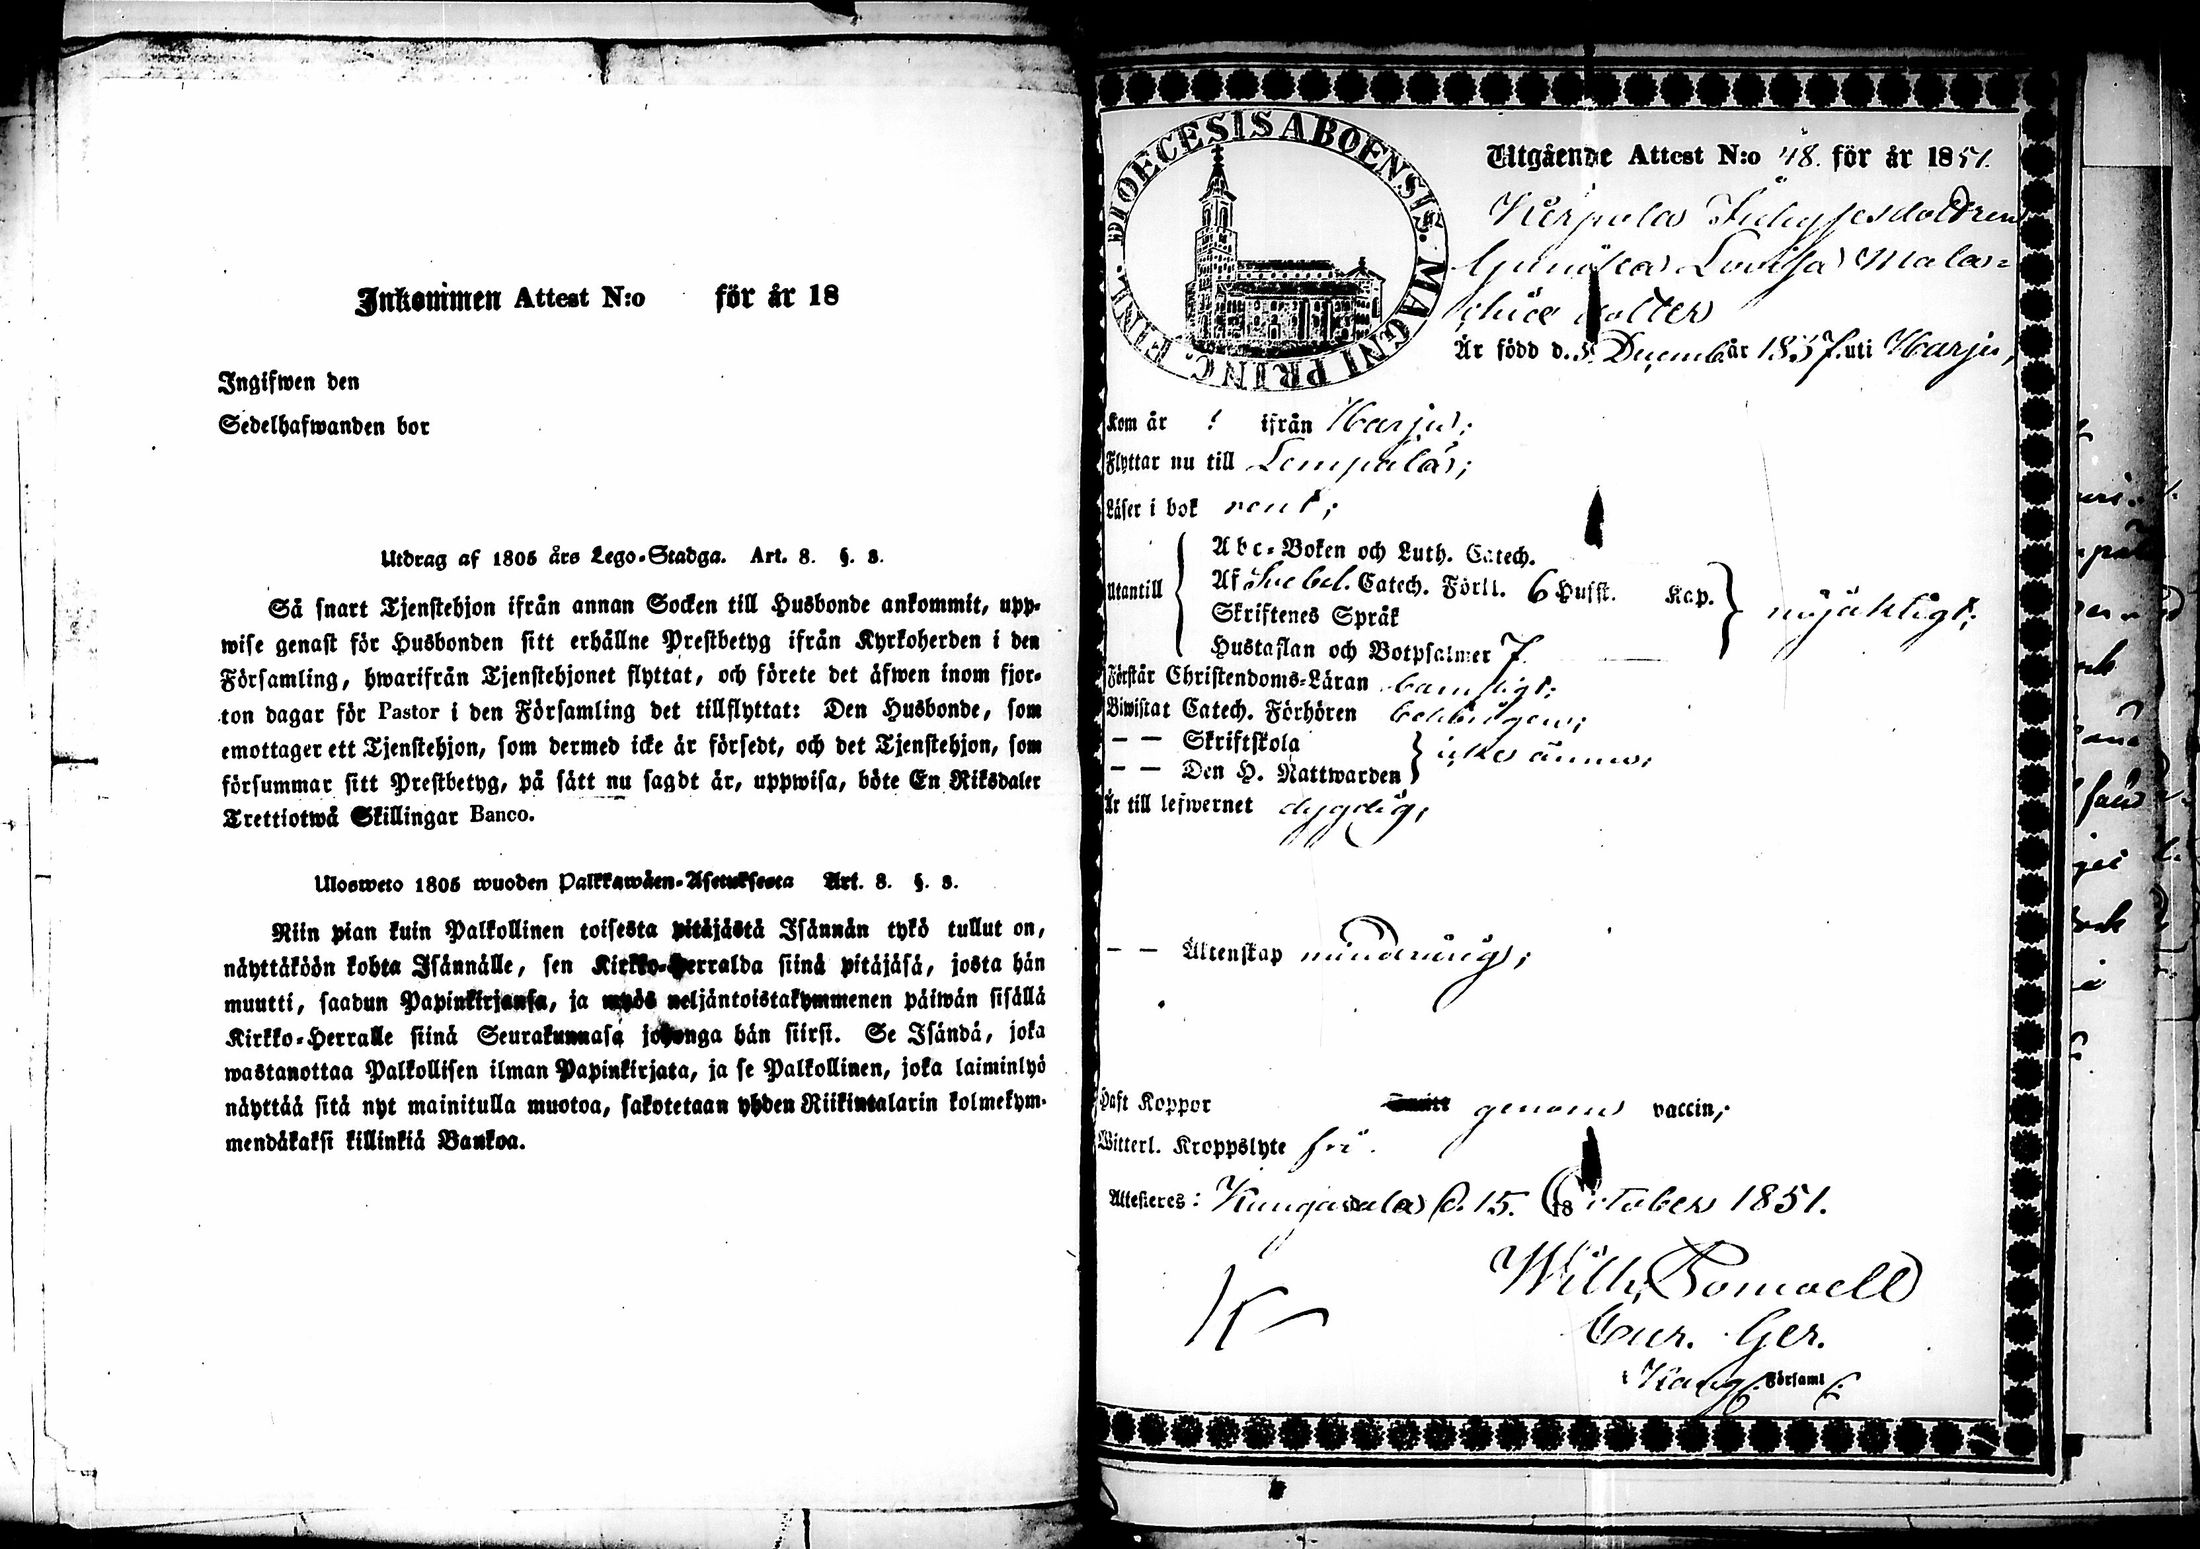 Inkommen Attest N:o för år 18
Ingifwen den
Sedelhafwanden bor
Utdrag af 1805 års Lego-Stadga. Art. 8. §. 8.
Så snart Tjenstehjon ifrån annan Socken till Husbonde ankommit, upp-
wise genast för Husbonden sitt erhållne Prestbetyg ifrån Kyrkoherden i den
Församling, hwarifrån Tjenstehjonet flyttat, och förete det äfwen inom fjor-
ton dagar för Pastor i den Församling det tillflyttat: Den Husbonde, som
emottager ett Tjenstehjon, som dermed icke är försedt, och det Tjenstehjon, som
försummar sitt Prestbetyg, på sätt nu sagdt är, uppwisa, böte En Riksdaler
Trettiotwå Skillingar Banco.
Ulosweto 1805 wuoden Palkkawäen-Asetuksesta Art. 8. §. 8.
Niin pian kuin Palkollinen toisesta pitäjästä Isännän tykö tullut on,
näyttäköön kohta Isännälle, sen Kirkko-Herralda siinä pitäjäsä, josta hän
muutti, saadun Papinkirjansa, ja myös neljäntoistakymmenen päiwän sisällä
Kirkko-Herralle siinä Seurakunnasa johonga hän siirsi. Se Isändä, joka
wastanottaa Palkollisen ilman Papinkirjata, ja se Palkollinen, joka laiminlyö
näyttää sitä nyt mainitulla muotoa, sakotetaan yhden Riikintalarin kolmekym-
mendäkaksi killinkiä Bankoa.
DIOECESIS ABOENSIS. MAGNI PRINC. FINL.
Utgående Attest N:o 48. för år 1851.
Lovisa Mata=
dotter
Är född d. 5 Decemb är 1837. uti Harju,
Kom år ! ifrån Harju;
Flyttar nu till Lempälä;
Läser i bok rent;
Utantill
Abc-Boken och Luth. Catech.
Af Svebel. Catech. Förkl. 6 Husst. Kap. nöjaktligt;
Skriftenes Språk
Hustaflan och Botpsalmer 7
Förstår Christendoms-Läran barnsligt;
Biwistat Catech. Förhören behörigen;
— — Skriftskola
— — Den H. Nattwarden icke ännu;
Är till lefwernet dygdig,
— — Äktenskap minderårig;
Haft Koppor genom vaccin;
Witterl. Kroppslyte fri.
Attesteres: Kangasala d. 15. October 1851.
Cur. Ger.
i Kang. Församl.